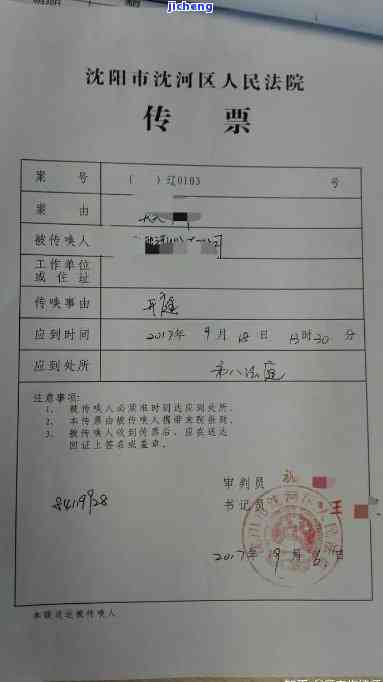 jicheng
沈阳市沈河区人民法院
传票
案号 ( )辽0103 号
案由
被传唤人
工作单位
或住址
传唤事由 开庭
应到时间 2017年 9月 18日 13时30分
应到处所 第八法庭
注意事项:
1、被传唤人必须准时到达应到处所。
2、本传票由被传唤人携带来院报到。
3、被传唤人收到传票后,应在送达
回证上签名或盖章。
审判员
书记员 王
2017年 9月 6日
本联送达被传唤人